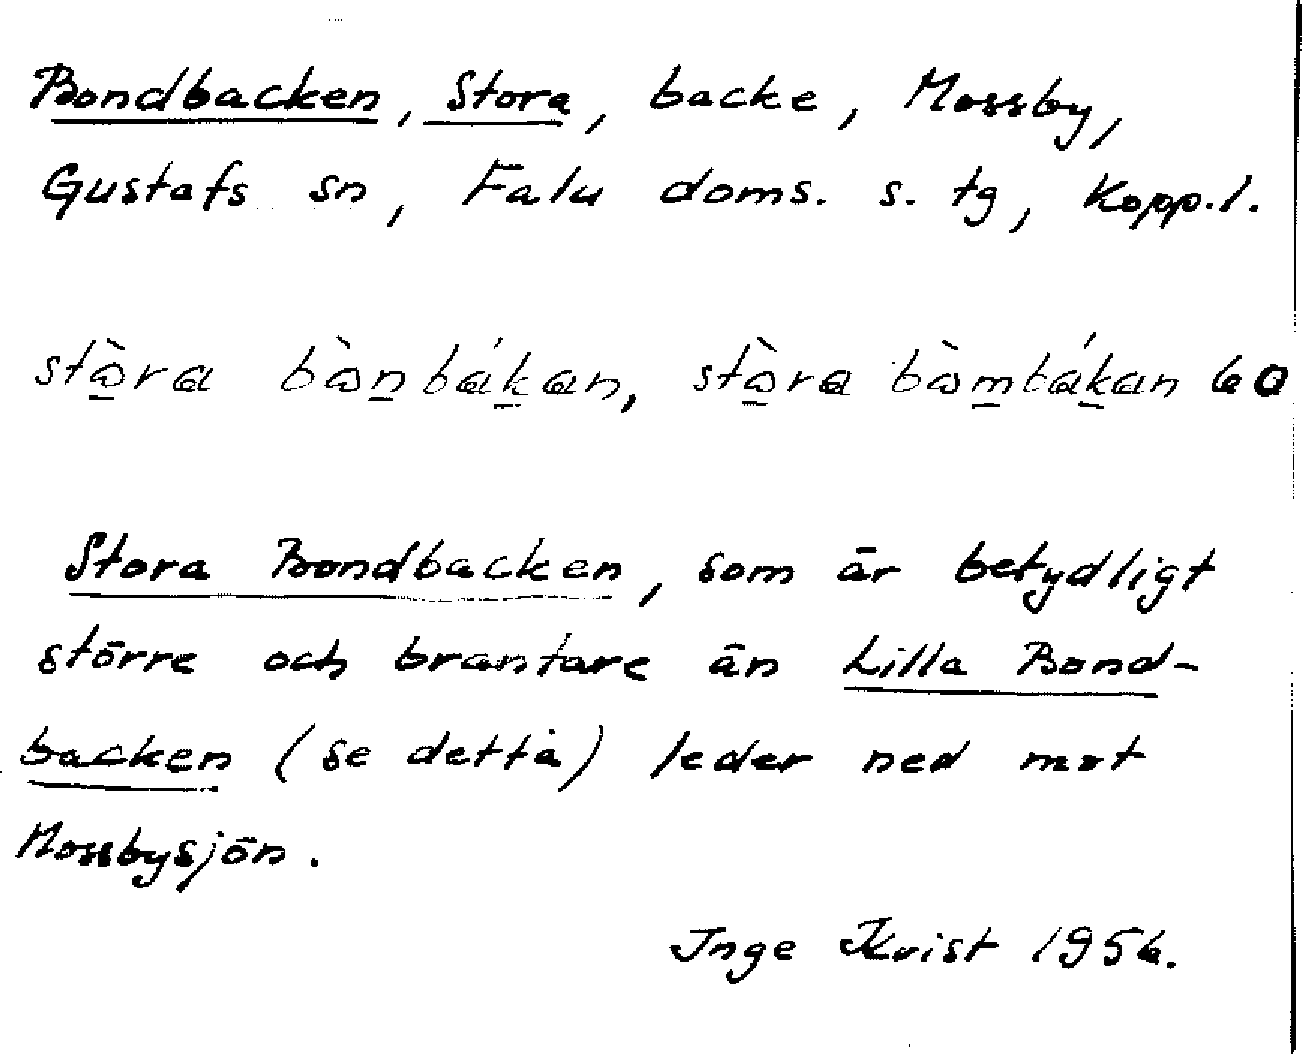 Bondbacken, Stora, backe, Mossby,
Gustafs sn, Falu doms. s. tg, Kopp.l.
60
Stora Bondbacken, som är betydligt
större och brantare än Lilla Bond-
backen (se detta) leder ned mot
Mossbysjön.
Inge Kvist 1956.